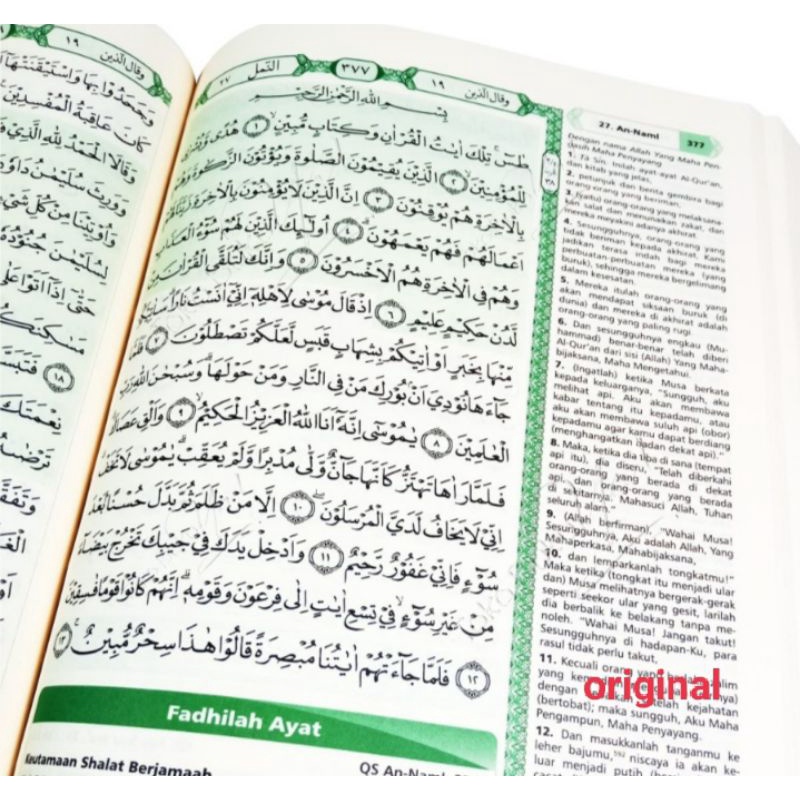 وقال الذين ١٩
وَجَحَدُوْا بِهَا وَاسْتَيْقَنَتْهَآ
كَانَ عَاقِبَةُ الْمُفْسِدِيْنَ
وَقَالَا الْحَمْدُ لِلّٰهِ الَّذِيْ
وَوَرِثَ سُلَيْمٰنُ
وَاُوْتِيْنَا مِنْ كُلِّ
لِسُلَيْمٰنَ جُنُوْدُهٗ
حَتّٰىٓ اِذَآ اَتَوْا عَلٰى
مَسٰكِنَكُمْ
١٨ فَتَبَسَّمَ
نِعْمَتَكَ
وَتَفَقَّدَ
وقال الذين ١٩
٣٧٧
النّمل ٢٧
بِسْمِ اللّٰهِ الرَّحْمٰنِ الرَّحِيْمِ
طٰسۤ ۚ تِلْكَ اٰيٰتُ الْقُرْاٰنِ وَكِتَابٍ مُّبِيْنٍ ۙ ١ هُدًى وَّبُشْرٰى
لِلْمُؤْمِنِيْنَ ۙ ٢ الَّذِيْنَ يُقِيْمُوْنَ الصَّلٰوةَ وَيُؤْتُوْنَ الزَّكٰوةَ وَهُمْ
بِالْاٰخِرَةِ هُمْ يُوْقِنُوْنَ ٣ اِنَّ الَّذِيْنَ لَا يُؤْمِنُوْنَ بِالْاٰخِرَةِ زَيَّنَّا لَهُمْ
اَعْمَالَهُمْ فَهُمْ يَعْمَهُوْنَ ۗ ٤ اُولٰۤىِٕكَ الَّذِيْنَ لَهُمْ سُوْۤءُ الْعَذَابِ
وَهُمْ فِى الْاٰخِرَةِ هُمُ الْاَخْسَرُوْنَ ٥ وَاِنَّكَ لَتُلَقَّى الْقُرْاٰنَ مِنْ
لَّدُنْ حَكِيْمٍ عَلِيْمٍ ٦ اِذْ قَالَ مُوْسٰى لِاَهْلِهٖٓ اِنِّيْٓ اٰنَسْتُ نَارًاۗ سَاٰتِيْكُمْ
مِّنْهَا بِخَبَرٍ اَوْ اٰتِيْكُمْ بِشِهَابٍ قَبَسٍ لَّعَلَّكُمْ تَصْطَلُوْنَ ٧ فَلَمَّا
جَاۤءَهَا نُوْدِيَ اَنْۢ بُوْرِكَ مَنْ فِى النَّارِ وَمَنْ حَوْلَهَاۗ وَسُبْحٰنَ اللّٰهِ رَبِّ
الْعٰلَمِيْنَ ٨ يٰمُوْسٰٓى اِنَّهٗٓ اَنَا اللّٰهُ الْعَزِيْزُ الْحَكِيْمُ ۙ ٩ وَاَلْقِ عَصَاكَ
فَلَمَّا رَاٰهَا تَهْتَزُّ كَاَنَّهَا جَاۤنٌّ وَّلّٰى مُدْبِرًا وَّلَمْ يُعَقِّبْۗ يٰمُوْسٰى لَا تَخَفْ
اِنِّيْ لَا يَخَافُ لَدَيَّ الْمُرْسَلُوْنَ ۖ ١٠ اِلَّا مَنْ ظَلَمَ ثُمَّ بَدَّلَ حُسْنًاۢ بَعْدَ
سُوْۤءٍ فَاِنِّيْ غَفُوْرٌ رَّحِيْمٌ ١١ وَاَدْخِلْ يَدَكَ فِيْ جَيْبِكَ تَخْرُجْ بَيْضَاۤءَ
مِنْ غَيْرِ سُوْۤءٍۙ فِيْ تِسْعِ اٰيٰتٍ اِلٰى فِرْعَوْنَ وَقَوْمِهٖۗ اِنَّهُمْ كَانُوْا قَوْمًا فٰسِقِيْنَ
١٢ فَلَمَّا جَاۤءَتْهُمْ اٰيٰتُنَا مُبْصِرَةً قَالُوْا هٰذَا سِحْرٌ مُّبِيْنٌ ۚ ١٣
Fadhilah Ayat
Keutamaan Shalat Berjamaah
QS An-Naml
27. An-Naml 377
Dengan nama Allah Yang Maha Pen-
gasih Maha Penyayang
1. Tā Sīn. Inilah ayat-ayat Al-Qur'an,
dan kitab yang jelas,
2. petunjuk dan berita gembira bagi
orang-orang yang beriman,
3. (yaitu) orang-orang yang melaksana-
kan salat dan menunaikan zakat, dan
mereka meyakini adanya akhirat.
4. Sesungguhnya, orang-orang yang
tidak beriman kepada akhirat, Kami
jadikan terasa indah bagi mereka
perbuatan-perbuatan mereka (yang
buruk), sehingga mereka bergelimang
dalam kesesatan.
5. Mereka itulah orang-orang yang
akan mendapat siksaan buruk (di
dunia) dan mereka di akhirat adalah
orang-orang yang paling rugi.
6. Dan sesungguhnya engkau (Mu-
hammad) benar-benar telah diberi
Al-Qur'an dari sisi (Allah) Yang Maha-
bijaksana, Maha Mengetahui.
7. (Ingatlah) ketika Musa berkata
kepada keluarganya, "Sungguh, aku
melihat api. Aku akan membawa
kabar tentang itu kepadamu, atau
aku akan membawa suluh api (obor)
kepadamu agar kamu dapat berdiang
(menghangatkan badan dekat api)."
8. Maka, ketika dia tiba di sana (tempat
api itu), dia diseru, "Telah diberkahi
orang-orang yang berada di dekat
api, dan orang-orang yang berada
di sekitarnya. Mahasuci Allah, Tuhan
seluruh alam."
9. (Allah berfirman), "Wahai Musa!
Sesungguhnya, Aku adalah Allah, Yang
Mahaperkasa, Mahabijaksana,
10. dan lemparkanlah tongkatmu!"
Maka ketika (tongkat itu menjadi ular
dan) Musa melihatnya bergerak-gerak
seperti seekor ular yang gesit, larilah
dia berbalik ke belakang tanpa me-
noleh. "Wahai Musa! Jangan takut!
Sesungguhnya di hadapan-Ku, para
rasul tidak perlu takut,
11. Kecuali orang yang berlaku zalim
yang kemudian
dengan kebaikan setelah kejahatan
(bertobat); maka sungguh, Aku Maha
Pengampun, Maha Penyayang.
12. Dan masukkanlah tanganmu ke
leher bajumu,592 niscaya ia akan ke-
luar menjadi putih (ber
original